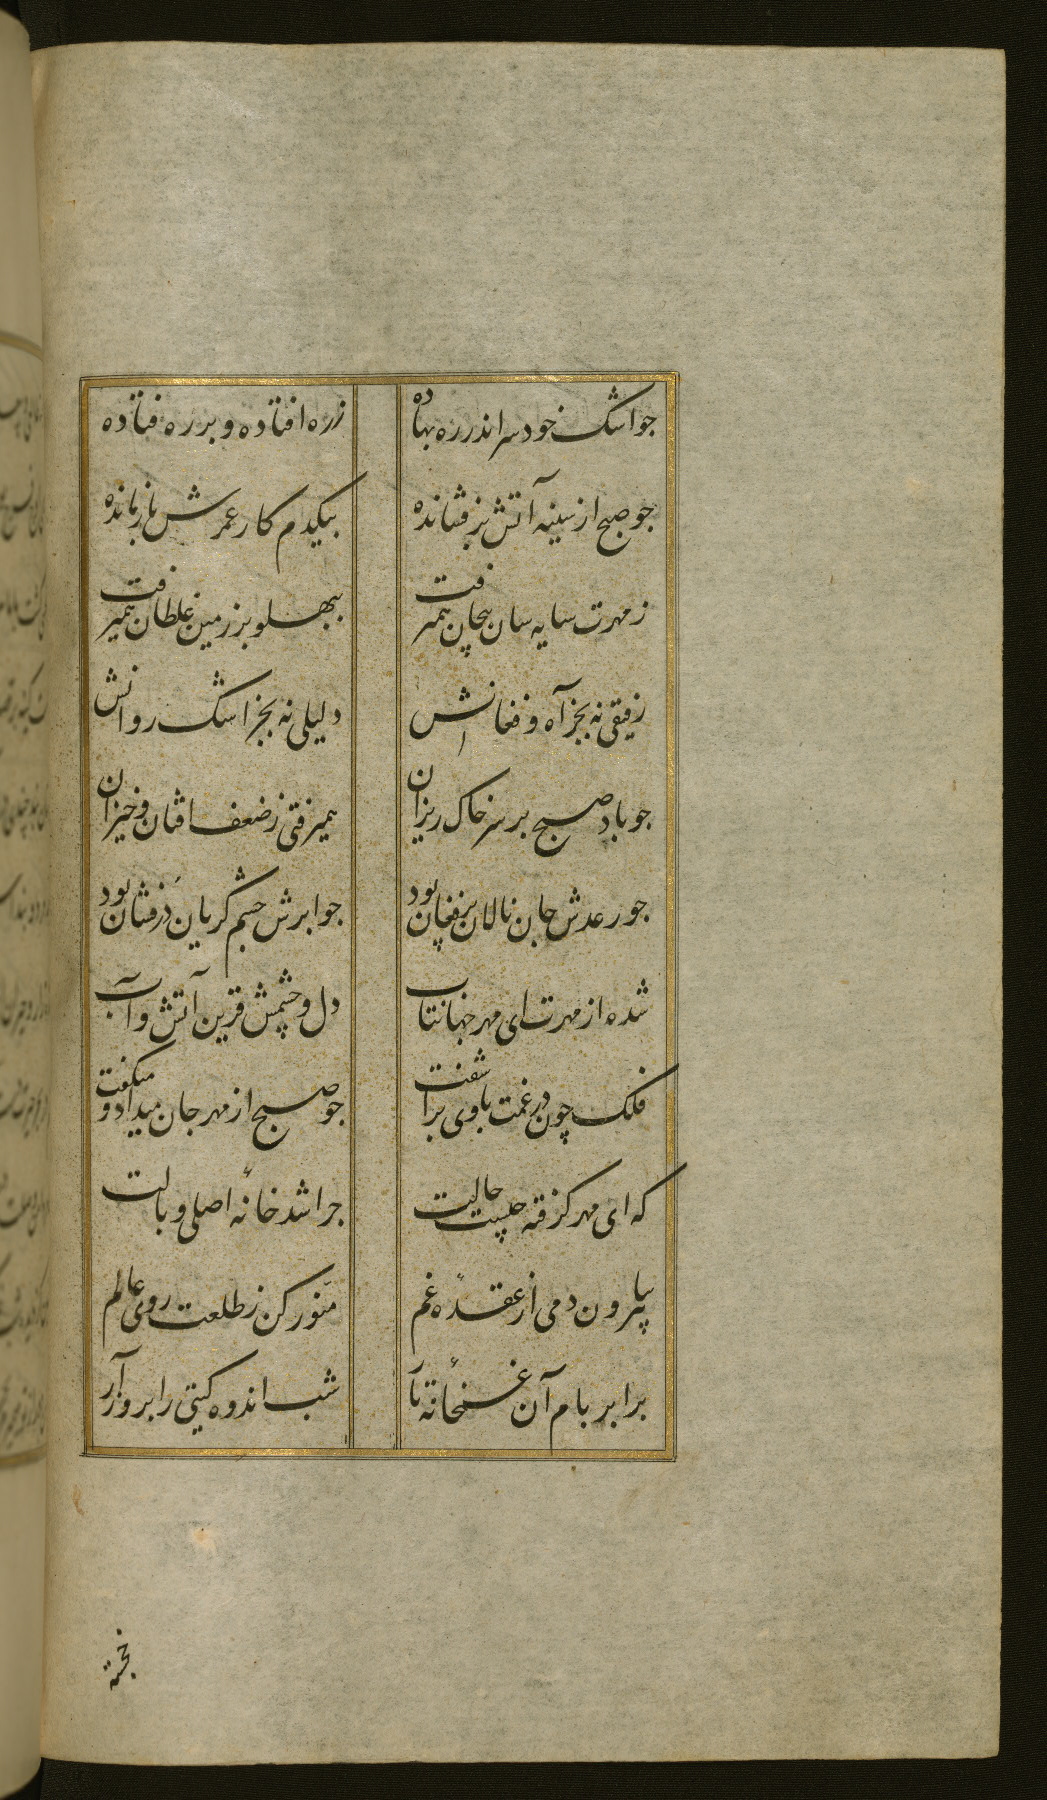 جو اشک خود سر اندر ره نهاده
زره افتاده و بر ره فتاده
جو صبح از سینه آتش بر فشانده
بیکدم کار عمرش باز مانده
ز مهرت سایه سان پیچان همیرفت
ببهلو بر زمین غلطان همیرفت
رفیقی نه بجز آه و فغانش
دلیلی نه بجز اشک روانش
جو باد صبح بر سر خاک ریزان
همیرفتی ز ضعف افتان و خیزان
جو رعدش جان نالان بر فغان بود
جو ابرش جشم گریان درفشان بود
شده از مهرت ای مهر جهانتاب
دل و چشمش قرین آتش و آب
فلک چون در غمت با وی براشفت
جو صبح از مهر جان میداد و میکفت
که ای مهر کرفته چیست حالت
جرا شد خانهٔ اصلی وبالت
بیا بیرون دمی از عقدهٔ غم
منور کن ز طلعت روی عالم
برابر بام آن غمخانهٔ تار
شب اندوه کیتی را بروز آر
خجسته